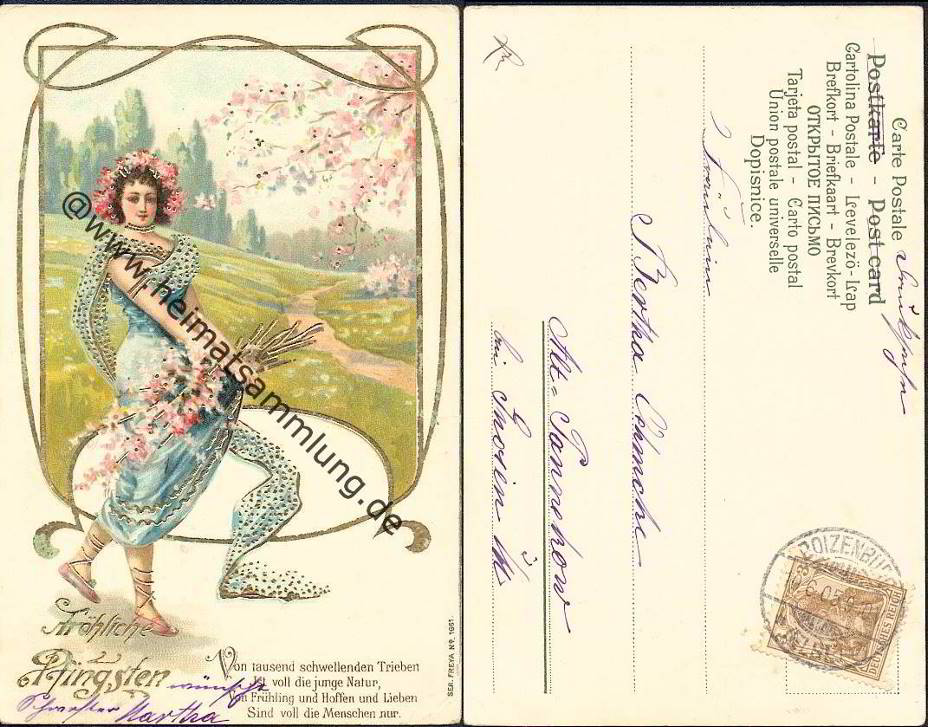 @www.heimatsammlung.de
Fröhliche
Pfingsten wünscht
Schwester Martha
Von tausend schwellenden Trieben
Ist voll die junge Natur,
Von Frühling und Hoffen und Lieben
Sind voll die Menschen nur.
SER. FREYA Nº. 1661.
Carte Postale
Postkarte - Post card
Cartolina Postale - Levelezö-Lap
Brefkort - Briefkaart - Brevkort
ОТКРЫТОЕ ПИСЬМО
Tarjeta postal - Carto postal
Union postale universelle
Dopisnice.
Drucksache
Fräulein
Bertha
Alt-Pannekow
bei Gnoien
BOIZENBURG
DEUTSCHES REICH